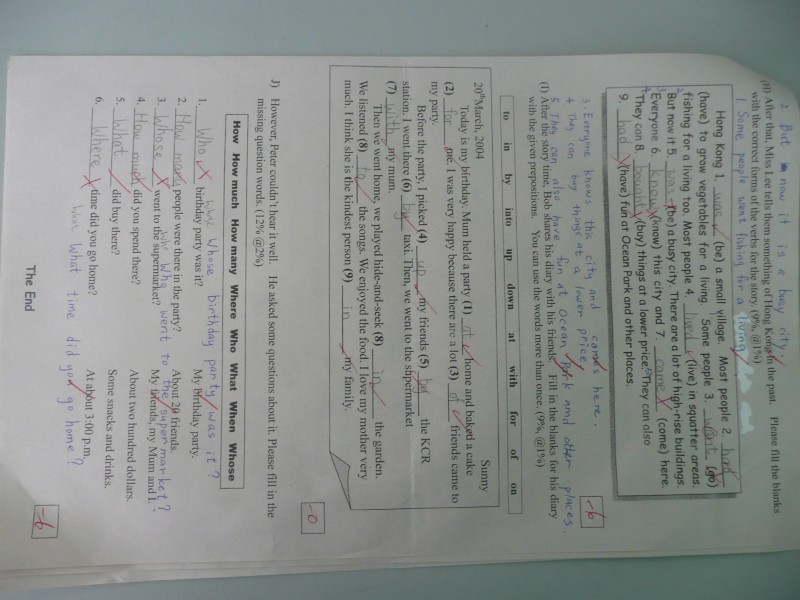 2 But now it is a busy city.
(H) After that, Miss Lee tells them something of Hong Kong in the past. Please fill the blanks
with the correct forms of the verbs for the story. (9%, @1%)
1. Some people went fishing for a living
Hong Kong 1. was (be) a small village. Most people 2. had
(have) to grow vegetables for a living. Some people 3. went (go)
fishing for a living too. Most people 4. lived (live) in squatter areas.
But now it 5. was (be) a busy city. There are a lot of high-rise buildings.
Everyone 6. know (know) this city and 7. came (come) here.
They can 8. bought (buy) things at a lower price. They can also
9. had (have) fun at Ocean Park and other places.
3. Everyone knows this city and comes here.
4 They can buy things at a lower price.
5 They can also have fun at Ocean Park and other places.
-6
(I) After the story time, Bob shares his diary with his friends. Fill in the blanks for his diary
with the given prepositions. You can use the words more than once (9%, @1%)
to in by into up down at with for of on
Sunny
20th March, 2004
Today is my birthday. Mum held a party (1) at home and baked a cake
(2) for me. I was very happy because there are a lot (3) of friends came to
my party.
Before the party, I picked (4) up my friends (5) by the KCR
station. I went there (6) by taxi. Then, we went to the supermarket
(7) with my mum.
Then we went home, we played hide-and-seek (8) in the garden.
We listened (8) to the songs. We enjoyed the food. I love my mother very
much. I think she is the kindest person (9) in my family.
-0
J) However, Peter couldn't hear it well. He asked some questions about it. Please fill in the
missing question words. (12% @2%)
How How much How many Where Who What When Whose
Whose birthday party was it?
1. Who birthday party was it? My birthday party.
2. How many people were there in the party? About 20 friends.
Who went to the supermarket?
3. Whose went to the supermarket? My friends, my Mum and I.
4. How much did you spend there? About two hundred dollars.
5. What did buy there? Some snacks and drinks.
6. Where time did you go home? At about 3:00 p.m.
What time did you go home?
-6
The End